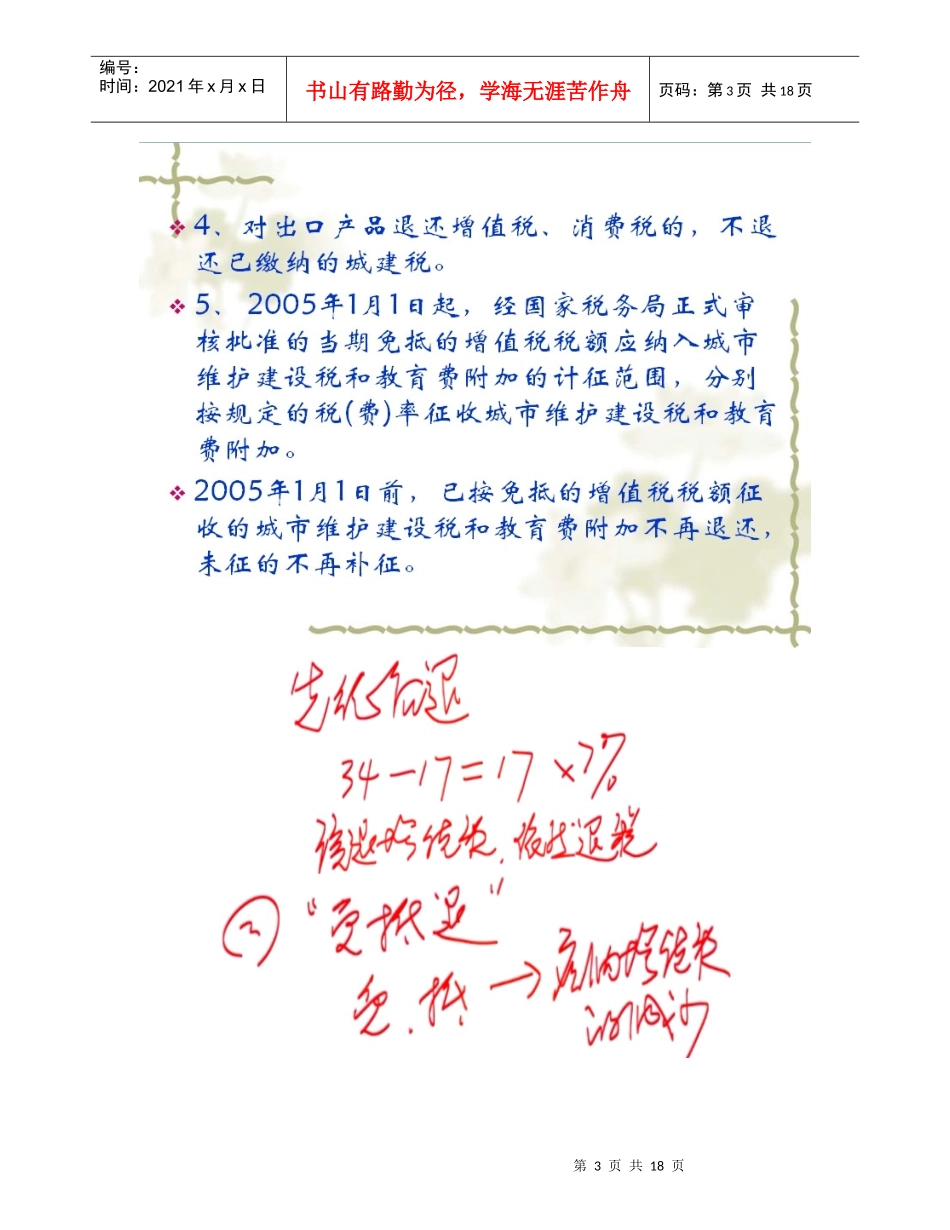 编号：
时间：2021年x月x日
书山有路勤为径，学海无涯苦作舟
页码：第3页 共18页
4、对出口产品退还增值税、消费税的，不退
还已缴纳的城建税。
5、2005年1月1日起，经国家税务局正式审
核批准的当期免抵的增值税税额应纳入城市
维护建设税和教育费附加的计征范围，分别
按规定的税(费)率征收城市维护建设税和教育
费附加。
2005年1月1日前，已按免抵的增值税税额征
收的城市维护建设税和教育费附加不再退还，
未征的不再补征。
34－17＝17×7%
②“免抵退”
免.抵→
第 3 页 共 18 页